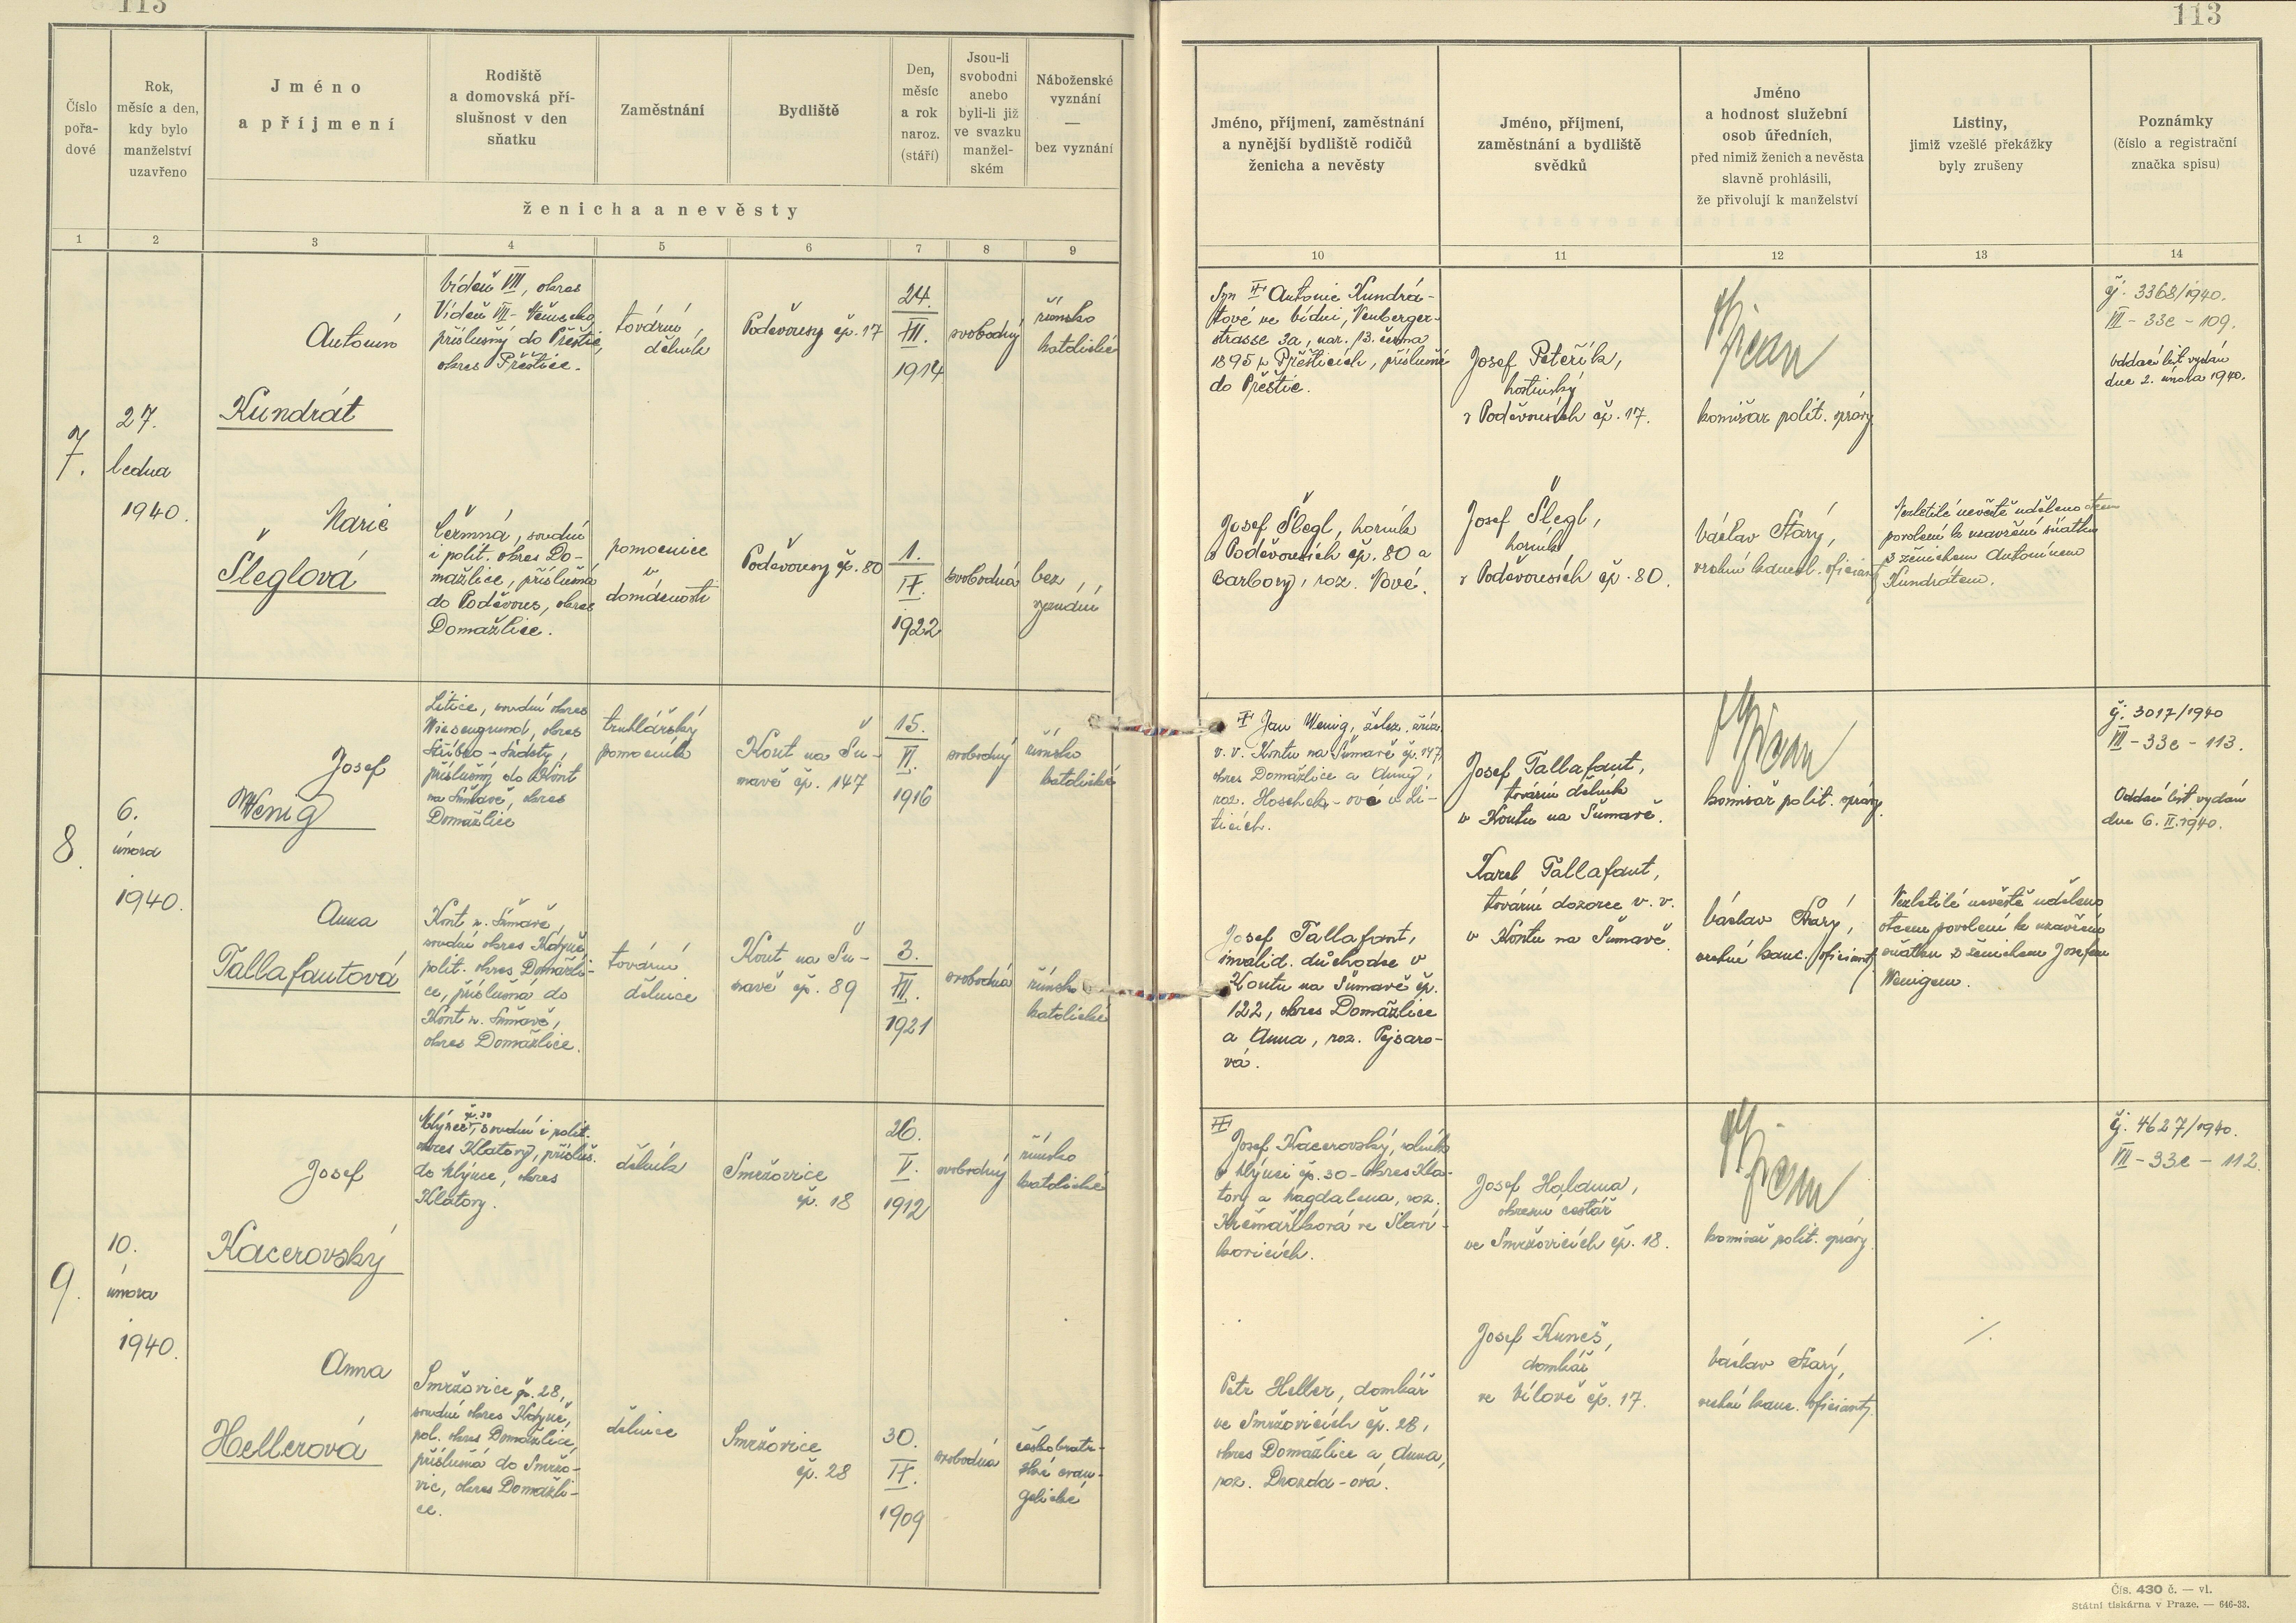 113
113
Číslo pořa- dové
Rok, měsíc a den, kdy bylo manželství uzavřeno
Jméno a příjmení
Rodiště a domovská pří- slušnost v den sňatku
Zaměstnání
Bydliště
Den, měsíc a rok naroz. (stáří)
Jsou-li svobodni anebo byli-li již ve svazku manžel- ském
Náboženské vyznání — bez vyznání
ženicha a nevěsty
Jméno, příjmení, zaměstnání a nynější bydliště rodičů ženicha a nevěsty
Jméno, příjmení, zaměstnání a bydliště svědků
Jméno a hodnost služební osob úředních, před nimiž ženich a nevěsta slavně prohlásili, že přivolují k manželství
Listiny, jimiž vzešlé překážky byly zrušeny
Poznámky (číslo a registrační značka spisu)
1 2 3 4 5 6 7 8 9 10 11 12 13 14
7.
27.
ledna
1940.
Antonín
Kundrát
Vídeň VIII, okres
Vídeň VIII - Německo,
příslušný do Přeštic,
okres Přeštice.
tovární
dělník
Poděvousy čp. 17
24.
XII.
1914
svobodný
římsko
katolické
Syn Antonie Kundrá-
tové ve Vídni, Neuberger-
strasse 3a, nar. 13. června
1895 v Přešticích, příslušné
do Přeštic.
Josef Peteřík,
hostinský
v Poděvousích čp. 17.
komisař polit. správy
čj. 3368/1940.
VII - 33e - 109.
Oddací list vydán
dne 2. února 1940.
Marie
Šleglová
Čermná, soudní
i polit. okres Do-
mažlice, příslušná
do Poděvous, okres
Domažlice.
pomocnice
v
domácnosti
Poděvousy čp. 80
1.
IX.
1922
svobodná
bez
vyznání
Josef Šlegl, horník
v Poděvousích čp. 80 a
Barbory, roz. Vové.
Josef Šlegl,
horník
v Poděvousích čp. 80.
Václav Starý,
vrchní kancel. oficiant
Nezletilé nevěstě uděleno otcem
povolení k uzavření sňatku
s ženichem Antonínem
Kundrátem.
8.
6.
února
1940.
Josef
Wenig
Litice, soudní okres
Wiesengrund, okres
Stříbro - Sudety,
příslušný do Kout
na Šumavě, okres
Domažlice
truhlářský
pomocník
Kout na Šu-
mavě čp. 147
15.
II.
1916
svobodný
římsko
katolické
Jan Wenig, želez. zříz.
v. v. Koutu na Šumavě čp. 147,
okres Domažlice a Anny,
roz. Hoschek-ové v Li-
ticích.
Josef Tallafaut,
tovární dělník
v Koutu na Šumavě.
komisař polit. správy
čj. 3017/1940
VII - 33e - 113.
Oddací list vydán
dne 6. II. 1940.
Anna
Tallafautová
Kout n. Šumavě,
soudní okres Kdyně,
polit. okres Domažli-
ce, příslušná do
Kout n. Šumavě,
okres Domažlice.
tovární
dělnice
Kout na Šu-
mavě čp. 89
3.
XII.
1921
svobodná
římsko
katolické
Josef Tallafaut,
invalid. důchodce v
Koutu na Šumavě čp.
122, okres Domažlice
a Anna, roz. Pejsaro-
vá.
Karel Tallafaut,
tovární dozorce v. v.
v Koutu na Šumavě.
Václav Starý,
vrchní kanc. oficiant
Nezletilé nevěstě uděleno
otcem povolení k uzavření
sňatku s ženichem Josefem
Wenigem.
9.
10.
února
1940.
Josef
Kacerovský
čp. 30
Mlýnec, soudní i polit.
okres Klatovy, přísluš.
do Mlýnce, okres
Klatovy.
dělník
Smržovice
čp. 18
26.
V.
1912
svobodný
římsko
katolické
Josef Kacerovský, rolník
v Mlýnci čp. 30 - okres Kla-
tovy a Magdalena, roz.
Krčmaříková ve Slaví-
kovicích.
Josef Haldma,
okresní cestář
ve Smržovicích čp. 18.
komisař polit. správy
čj. 4627/1940.
VII - 33e - 112.
Anna
Hellerová
Smržovice čp. 28,
soudní okres Kdyně,
pol. okres Domažlice,
příslušná do Smržo-
vic, okres Domažli-
ce.
dělnice
Smržovice
čp. 28
30.
IX.
1909
svobodná
českobratr-
ské evan-
gelické
Petr Heller, domkář
ve Smržovicích čp. 28,
okres Domažlice a Anna,
roz. Drozda-ová.
Josef Kuneš,
domkář
ve Vílově čp. 17.
Václav Starý,
vrchní kanc. oficiant.
Čís. 430 č. — vl.
Státní tiskárna v Praze. — 646-33.